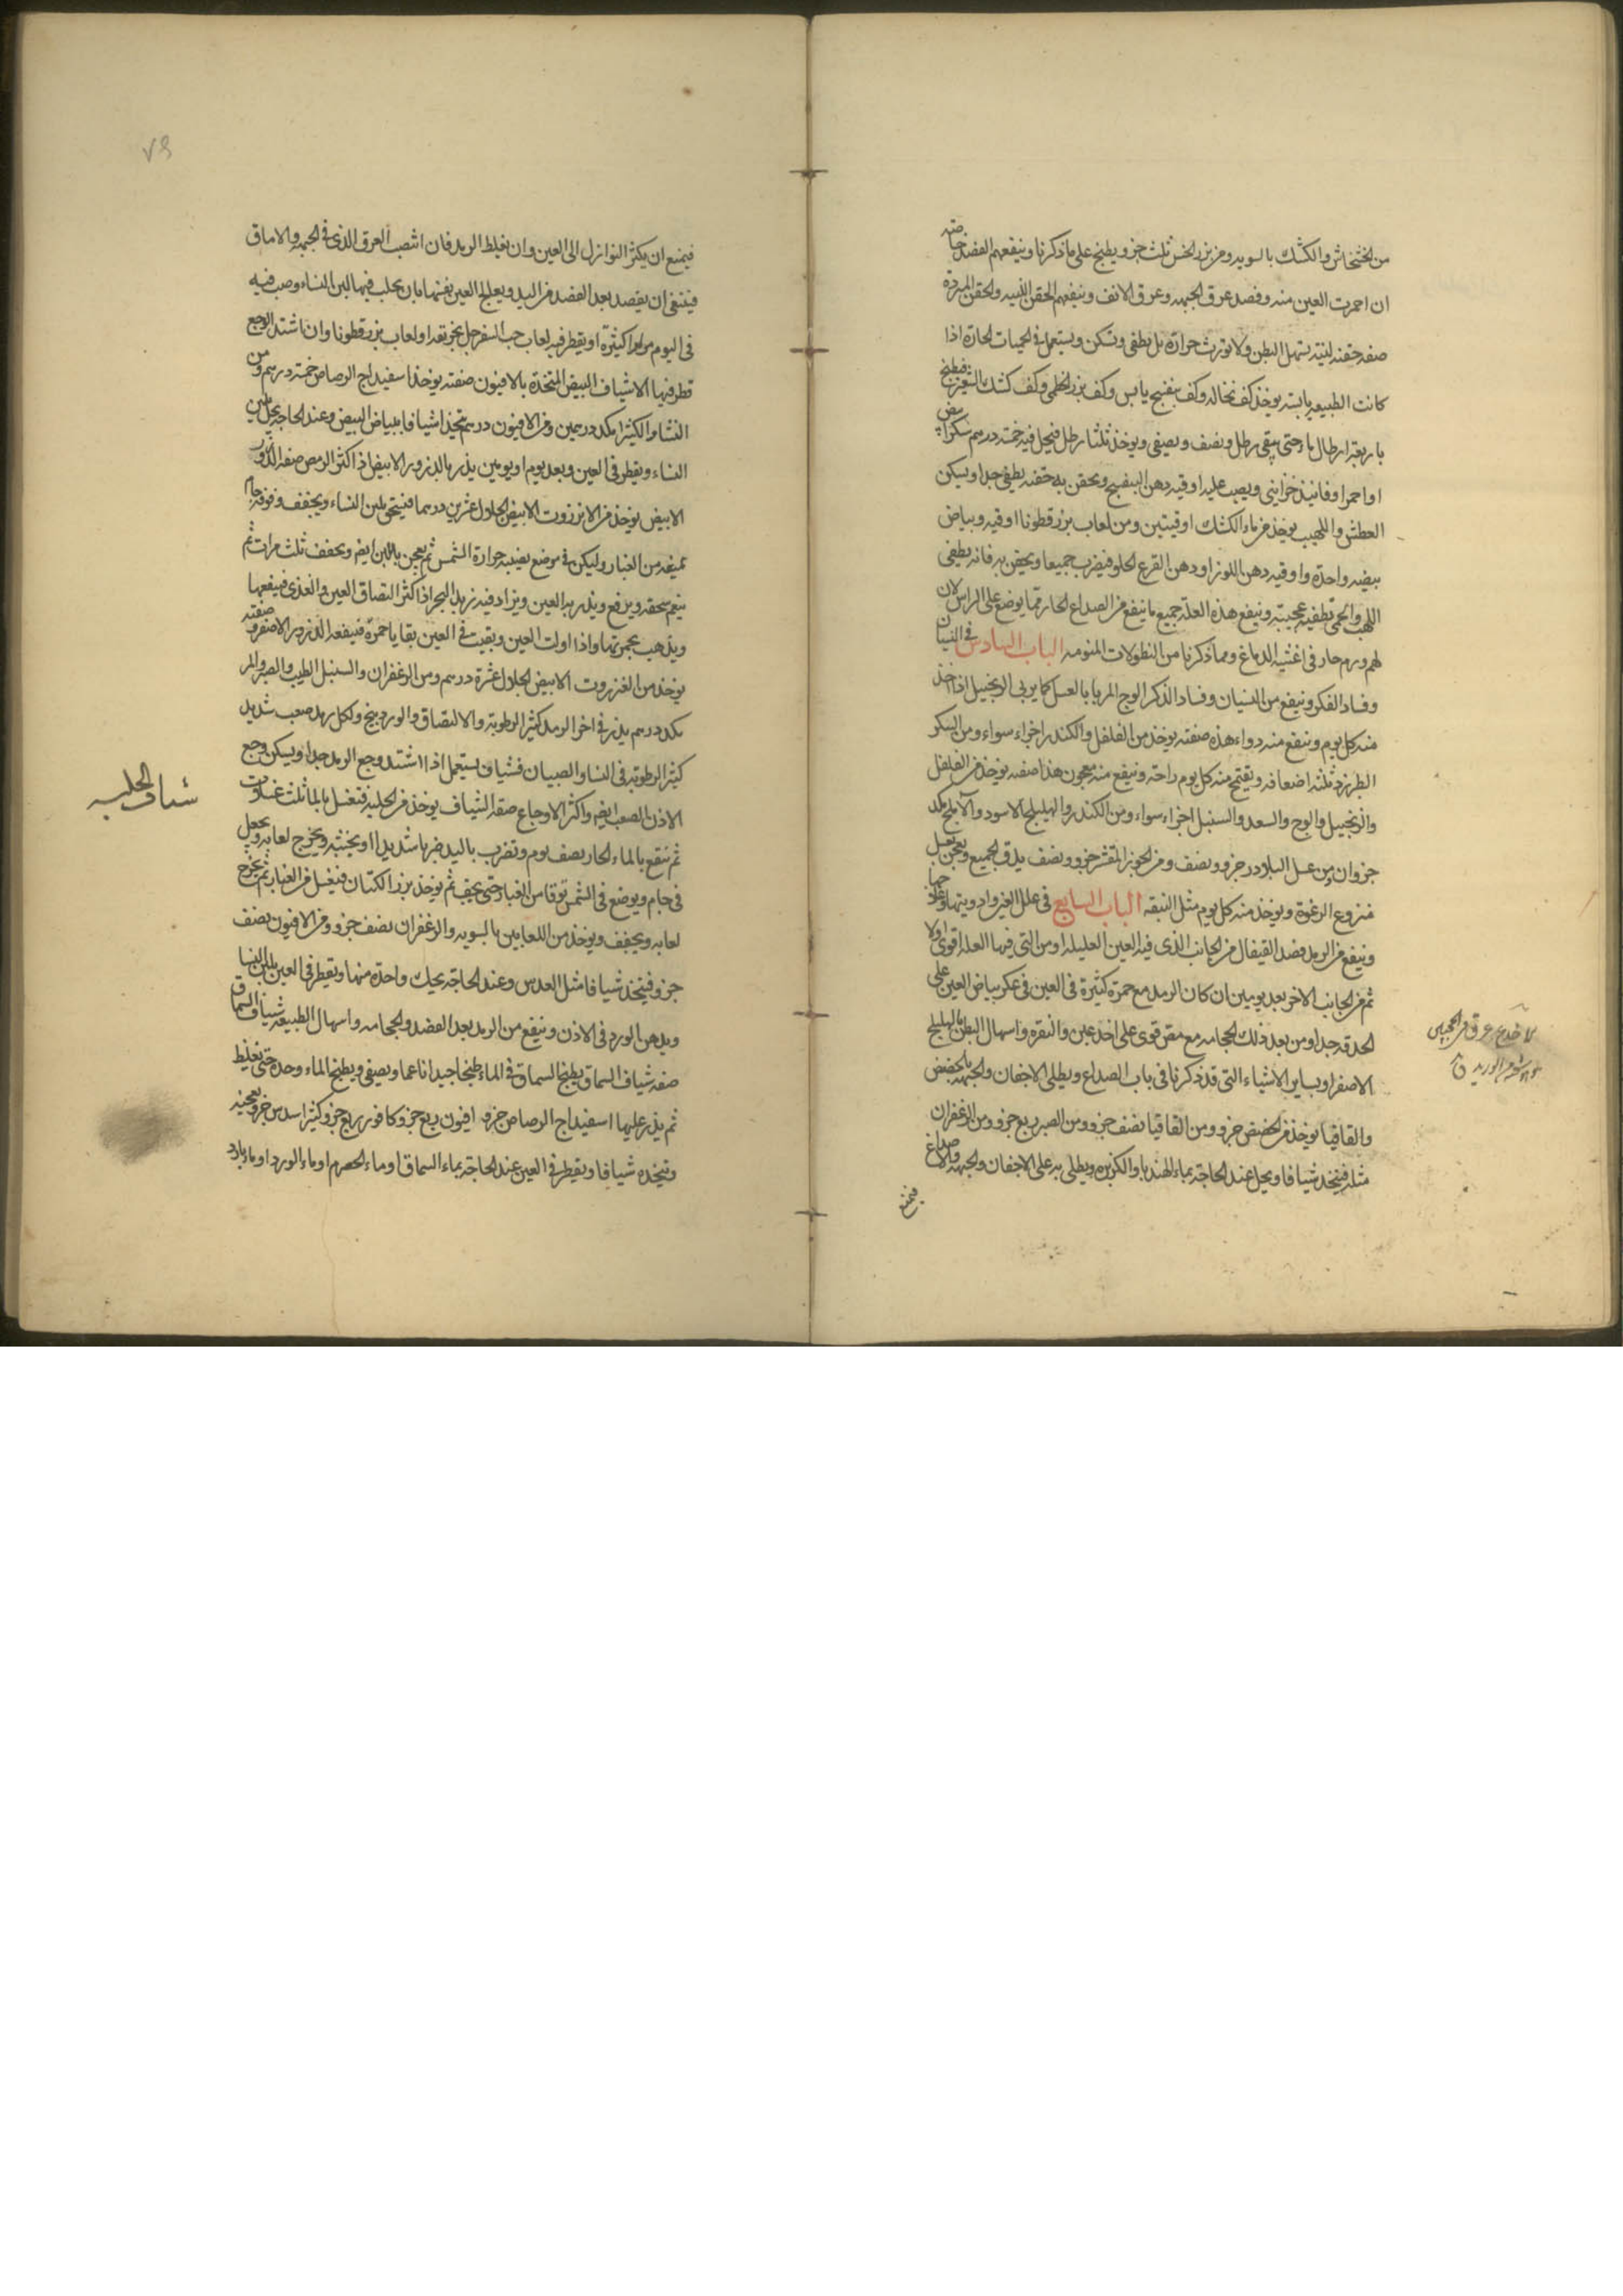 من الخشخاش والكشك بالسويه ومن بزر الخس ثلث جزو ويطبخ على ما ذكرنا وينفعهم الفصد خاصته
ان احمرت العين منه وفصد عرق الجبهه وعرق الانف وينفعهم الحقن اللينه والحقن المبردة
صفه حقنه لينه يسهل البطن ولا تورث حرارة بل يطفى وتسكن ويستعمل في الحميات الحارة اذا
كانت الطبيعه يابسه يوخذ كف نخاله وكف بنفسج يابس وكف بزر الخطمى وكف كشك الشعير فيطبخ
باربعة ارطال ماء حتى يبقى رطل ونصف ويصفى ويوخذ ثلثا رطل فيحل فيه خمسة درهم سكر ابيض
او احمر او فانيذ خزاينى ويصب عليه اوقيه دهن البنفسج ويحقن به حقنه يطفى جدا ويسكن
العطش واللهيب يوخذ من ماء الكشك اوقيتين ومن لعاب بزر قطونا اوقيه وبياض
بيضه واحدة واوقيه دهن اللوز او دهن القرع الحلو فيضرب جميعا ويحقن به فانه يطفى
اللهب والحمى تطفيه عجيبة وينفع هذه العلة جميع ما ينفع من الصداع الحار مما يوضع على الراس لان
لهم ورم حار فى اغشيه الدماغ ومما ذكرنا من النطولات المنومه الباب السادس في النسيان
وفساد الفكر وينفع من النسيان وفساد الذكر الوج المربا بالعسل كما يربى الزنجبيل اذا اخذ
منه كل يوم وينفع منه دواء هذه صفته يوخذ من الفلفل والكندر اجزاء سواء ومن السكر
الطبرزد ثلثه اضعافه ويقتمح منه كل يوم راحته وينفع منه معجون هذا صفه يوخذ من الفلفل
والزنجبيل والوج والسعد والسنبل اجزاء سواء ومن الكندر والهليلج الاسود والاملج مكد
جزوان ومن عسل البلادر جزو ونصف ومن الجوز المقشر جزو ونصف يدق الجميع ويعجن بعسل
منزوع الرغوة ويوخذ منه كل يوم مثل النبقه الباب السابع فى علل العين وادويتها وعلاجها
وينفع من الرمد فصد القيفال من الجانب الذى فيه العين العليله او من التى فيها العلة اقوى اولا
ثم من الجانب الاخر بعد يومين ان كان الرمد مع حمرة كثيرة فى العين فى عكر بياض العين على
الحدقه جدا ومن بعد ذلك الحجامه مع مص قوى على اخدعين والنقره واسهال البطن بالهليلج
الاصفر او بساير الاشياء التى قد ذكرنا فى باب الصداع ويطلى الاجفان والجبهه بالحضض
والقاقيا يوخذ من الحضض جزو ومن القاقيا نصف جزو ومن الصبر ربع جزو ومن الزعفران
مثله فيتخذ شيافا ويحل عند الحاجة بماء الهندبا والكزبره ويطلى به على الاجفان والجبهه والاصداغ
فيمنع
فيمنع ان يكثر النوازل الى العين وان يغلظ الرمد فان انتصب العرق الذى فى الجبهه والاماق
فينبغى ان يفصد بعد الفصد من اليد ويعالج العين نفسها بان يحلب فيها لبن النساء وصب فيه
فى اليوم مرارا كثيرة او يقطر فيه لعاب حب السفرجل بخر بقه او لعاب بزر قطونا وان اشتد الوجع
قطر فيها الاشياف البيض المتخذة بالافيون صفته يوخذ اسفيداج الرصاص خمسة درهم ومن
النشا والكثيرا مكد درهمين ومن الافيون درهم يتخذ اشيافا ببياض البيض وعند الحاجة يحل بلبن
النساء ويقطر فى العين وبعد يوم او يومين يذر بالذرور الابيض اذا اكثر الرمص صفه الذرور
الابيض يوخذ من الانزروت الابيض الجلال عشرين درهما فيسحق بلبن النساء ويجفف وفوقه جام
يمنعه من الغبار وليكن فى موضع يصيبه حرارة الشمس ثم يعجن باللبن ايضا ويجفف ثلث مرات ثم
ينعم سحقه ويرفع ويذر به العين ويزاد فيه زبد البحر اذا كثر التصاق العين والغذى فيفعها
ويذهب بحمرتها واذا اولت العين وبقيت فى العين بقايا حمرة فينفعه الذرور الاصفر وصفته
يوخذ من العنزروت الابيض الجلال عشرة درهم ومن الزعفران والسنبل الطيب والصبر والمر
مكد درهم يذر فى اخر الرمد كثير الرطوبة والالتصاق والوردينج ولكل رمد صعب شديد
كثير الرطوبة فى النساء والصبيان فشياف يستعمل اذا اشتد وجع الرمد جدا ويسكن وجع
الاذن الصعب ايضا واكثر الاوجاع صفه الشياف يوخذ من الحلبة فتغسل بالماء ثلث غسلات
ثم ينقع بالماء الحار نصف يوم وتضرب باليد ضربا شديدا ويخثنه ويخرج لعابه ويجعل
فى جام ويوضع فى الشمس توقا من الغبار حتى يجف ثم يوخذ بزر الكتان فيغسل من الغبار ثم يخرج
لعابه ويجفف ويوخذ من اللعابين بالسويه والزعفران نصف جزو ومن الافيون نصف
جزو فيتخذ شيافا مثل العدس وعند الحاجة يحك واحدة منها ويقطر فى العين بلبن النسا
وبدهن الورد فى الاذن وينفع من الرمد بعد الفصد والحجامه واسهال الطبيعه شياف السماق
صفه شياف السماق يطبخ السماق فى الماء طبخا جيدا ناعما ويصفى ويطبخ الماء وحده حتى يغلظ
ثم يذر عليها اسفيداج الرصاص جزو افيون ربع جزو كافور ربع جزو كثيرا سدس جزو يعجنه
وتتخده شيافا ويقطر فى العين عند الحاجة بماء السماق او ماء الحصرم او ماء الورد او ماء بارد
شياف الحلبه